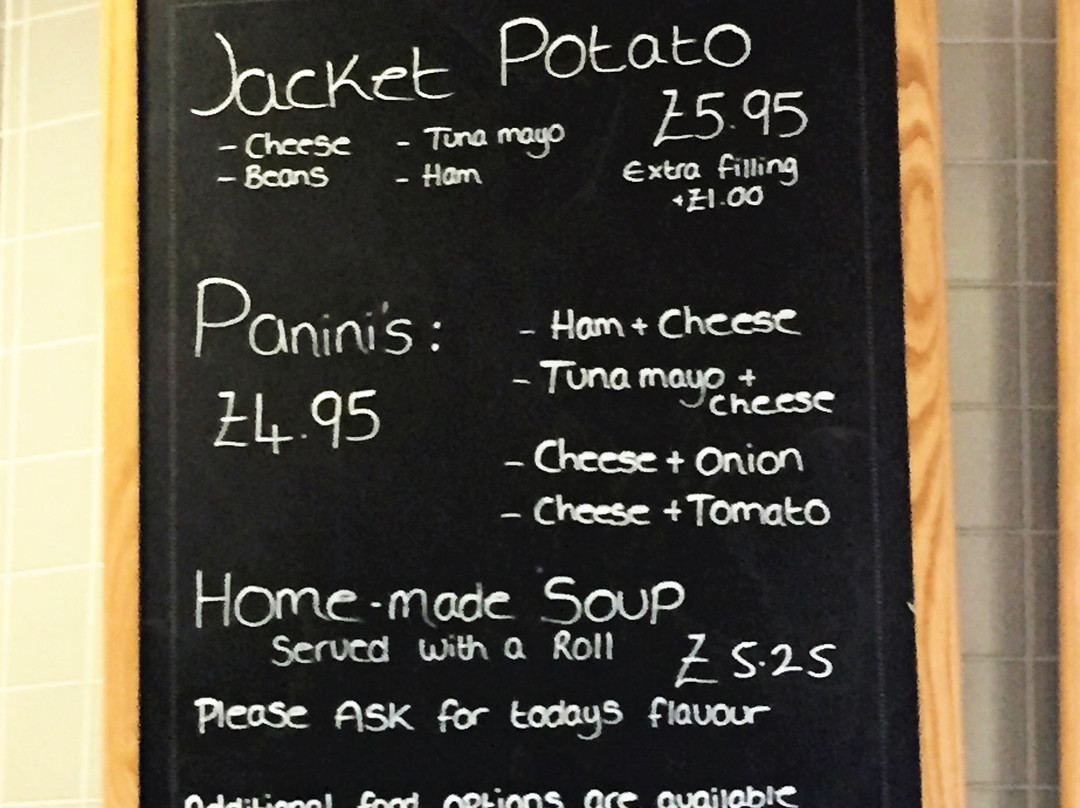 Jacket Potato
£5.95
- Cheese - Tuna mayo
- Beans - Ham
Extra filling
+£1.00
Panini's:
£4.95
- Ham + Cheese
- Tuna mayo +
cheese
- Cheese + Onion
- Cheese + Tomato
Home-made Soup
Served with a Roll £5.25
Please ASK for todays flavour
Additional food options are available